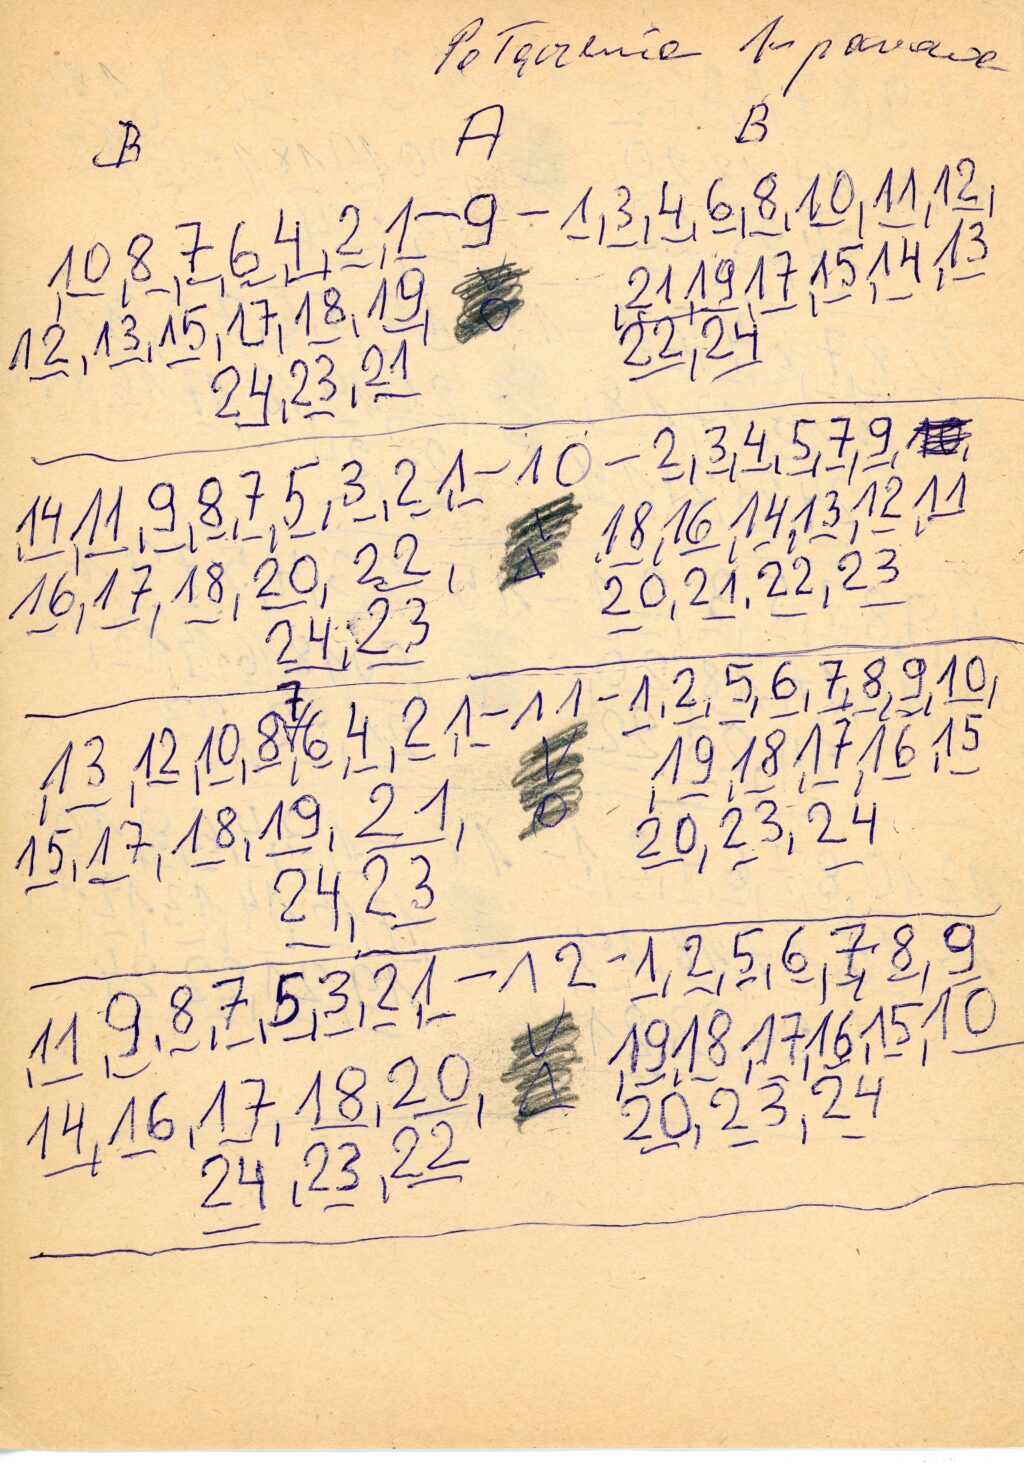 Połączenia 1-
B A B
10, 8, 7, 6, 4, 2, 1 - 9 - 1, 3, 4, 6, 8, 10, 11, 12,
12, 13, 15, 17, 18, 19, , 21, 19, 17, 15, 14, 13
24, 23, 21 22, 24
14, 11, 9, 8, 7, 5, 3, 2, 1 - 10 - 2, 3, 4, 5, 7, 9,
16, 17, 18, 20, 22, 18, 16, 14, 13, 12, 11
24, 23 20, 21, 22, 23
7
, 13, 12, 10, 8, 6, 4, 2, 1 - 11 - 1, 2, 5, 6, 7, 8, 9, 10,
15, 17, 18, 19, 21, , 19, 18, 17, 16, 15
24, 23 20, 23, 24
, 11, 9, 8, 7, 5, 3, 2, 1 - 12 - 1, 2, 5, 6, 7, 8, 9
14, 16, 17, 18, 20, , 19, 18, 17, 16, 15, 10
24, 23, 22 20, 23, 24